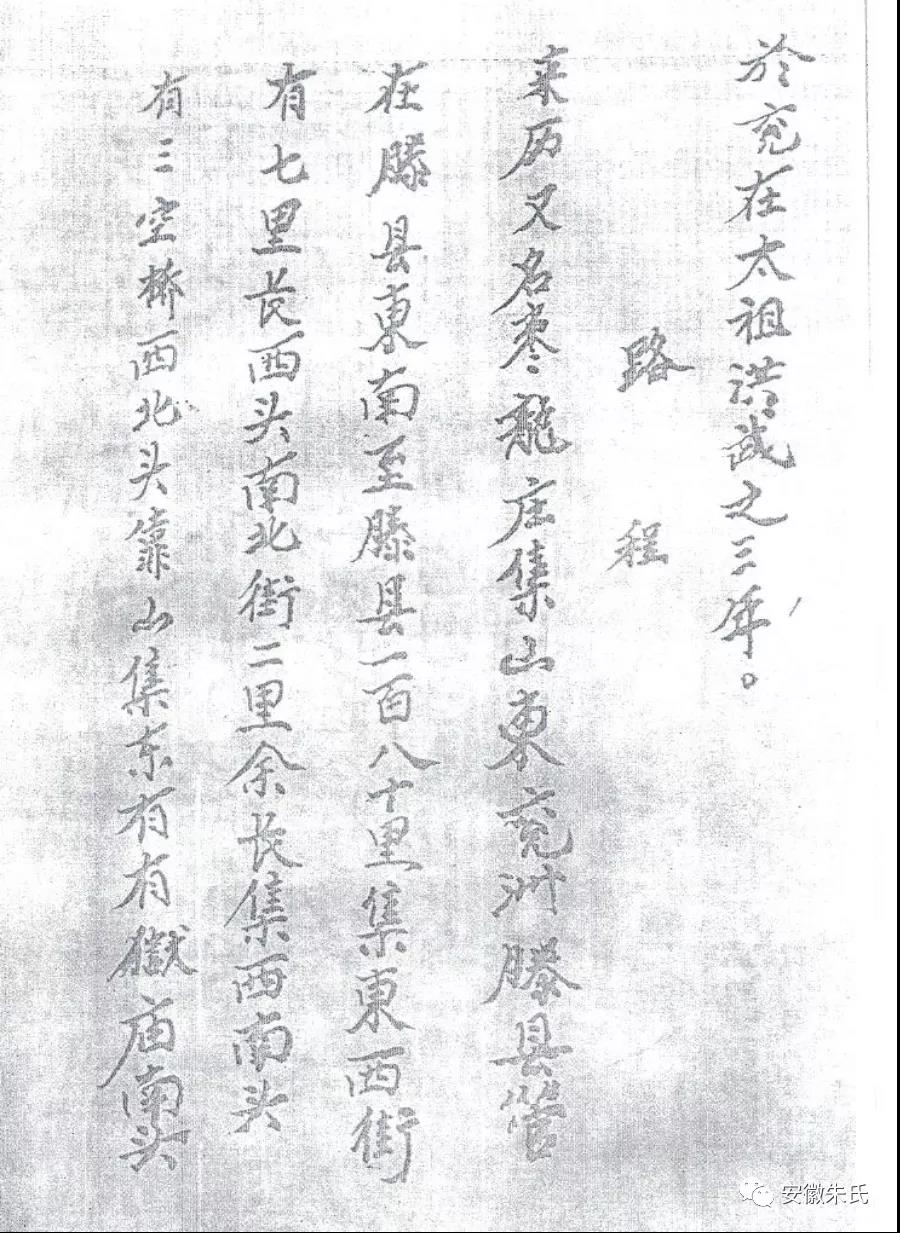 於兖在太祖洪武之三年。
路程
来历又名枣龍庄集山東兖州滕县管
在滕县東南至滕县一百八十里集東西街
有七里長西头南北街二里余長集西南头
有三空桥西北头靠山集东有有嶽庙南头
安徽朱氏